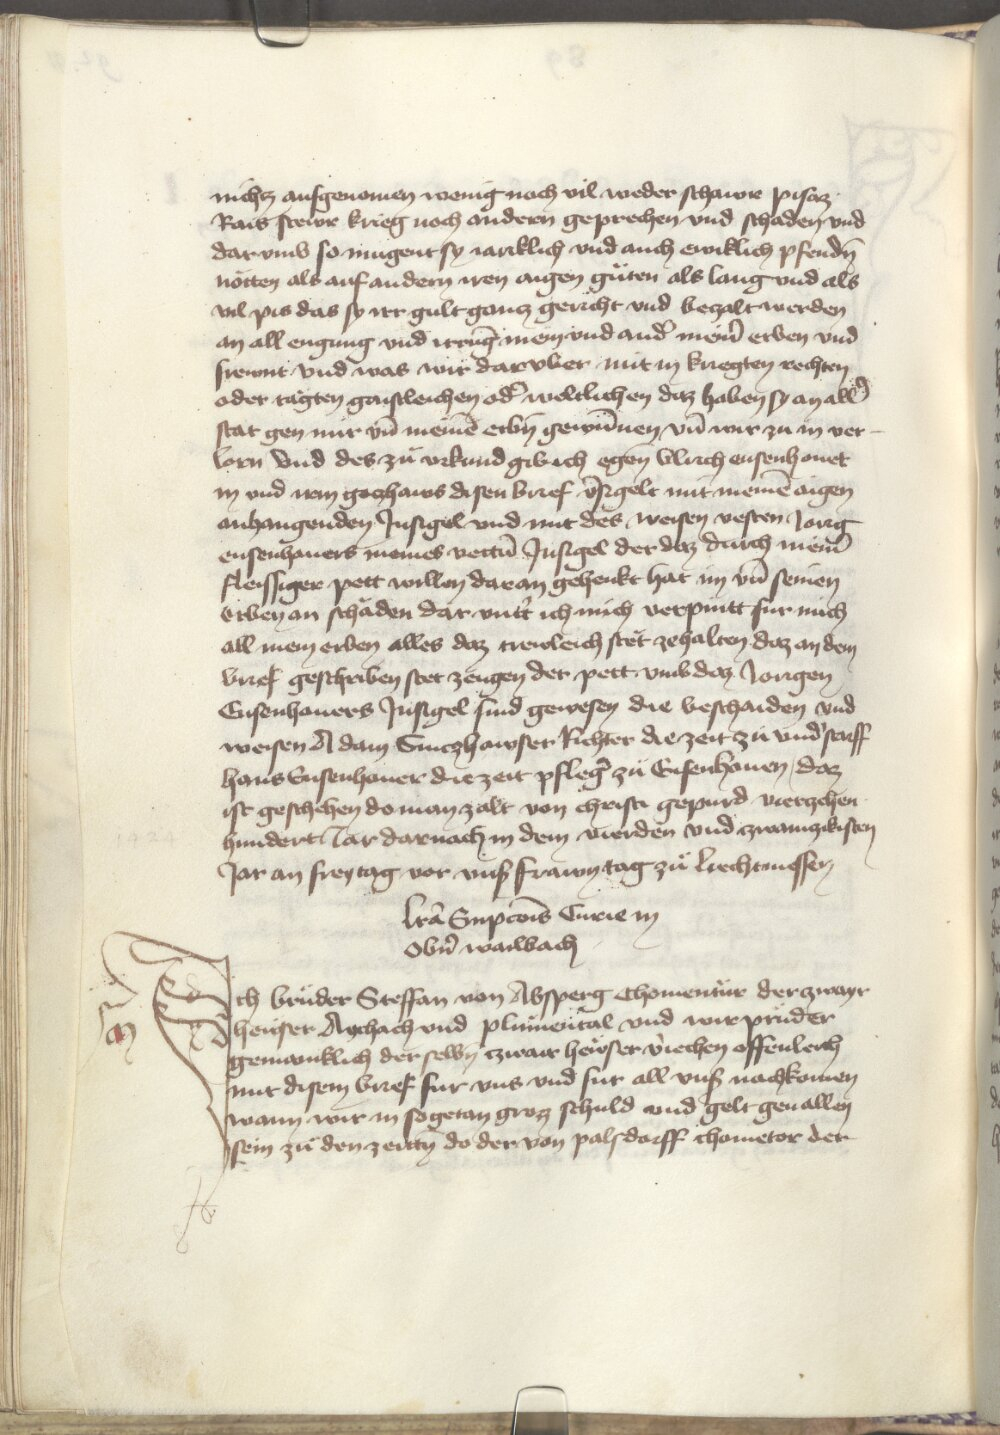 nichcz ausgenomen wenig noch vil weder schawr pisacz
Rais stewr krieg noch andern geprechen vnd schaden vnd
dar vmb so mugent sy iarklich vnd auch ewiklich pfendn̄
nötten als auf andern iren aigen güten als lang vnd als
vil pis das sy irr gult gancz gericht vnd beczalt werden
an all engung vnd irruḡ mein vnd and̄ mein̄ erben vnd
frewnt vnd was wir dar vber mit in kriegten rechten
oder tagten gaistleichen od̄ weltlichen daz haben sy an all̄
stat gen mir vn̄ meinē erbn̄ gewūnnen vn̄ wir zu in ver-
lorn Vnd des zü vrkund gib ich egen Vlrich eusenhouer
in vnd irm goczhaws disen brief v̄sigelt mit meinē aigen
anhangenden Insigel vnd mit des weisen vesten Jorig
eusenhauers meines vettn̄ Insigel der daz durch mein̄
fleissiger pett willen daran gehenkt hat im vn̄ seinen
erben an schäden dar vntt̄ ich mich verpintt fur mich
all mein erben alles daz trewleich stet zehalten daz an dem
brief geschriben stet zeugen der pett vmb daz Jorigen
Eusenhauers Insigel sind gewesen die beschaiden vnd
weisen Adam Sinczhawser Richter die zeit zü vnd̄storff
hans Eusenhauer die zeit pfleḡ zü Eusenhauen daz
ist geschehen do man zalt von christi gepurd vierczehen
hundert Jar darnach in dem vierden vnd zwainczikisten
Jar an freytag vor vnß frawn tag zü liechtmessen
lrā Empcōis Curie in
Obn̄ wailbach
Ich brüder Steffan von Absperg Chomentür der zwayr
hewser Aychach vnd plümental vnd wir prüder
gemainklich der selbn̄ zwair hewser v̄iechen offenleich
mit disem brief fur vns vnd fur all vnß nachkomen
wann wir in sogetan groz schuld vnd gelt geuallen
sein zü den zeittn̄ do der von palsdorff chometor der